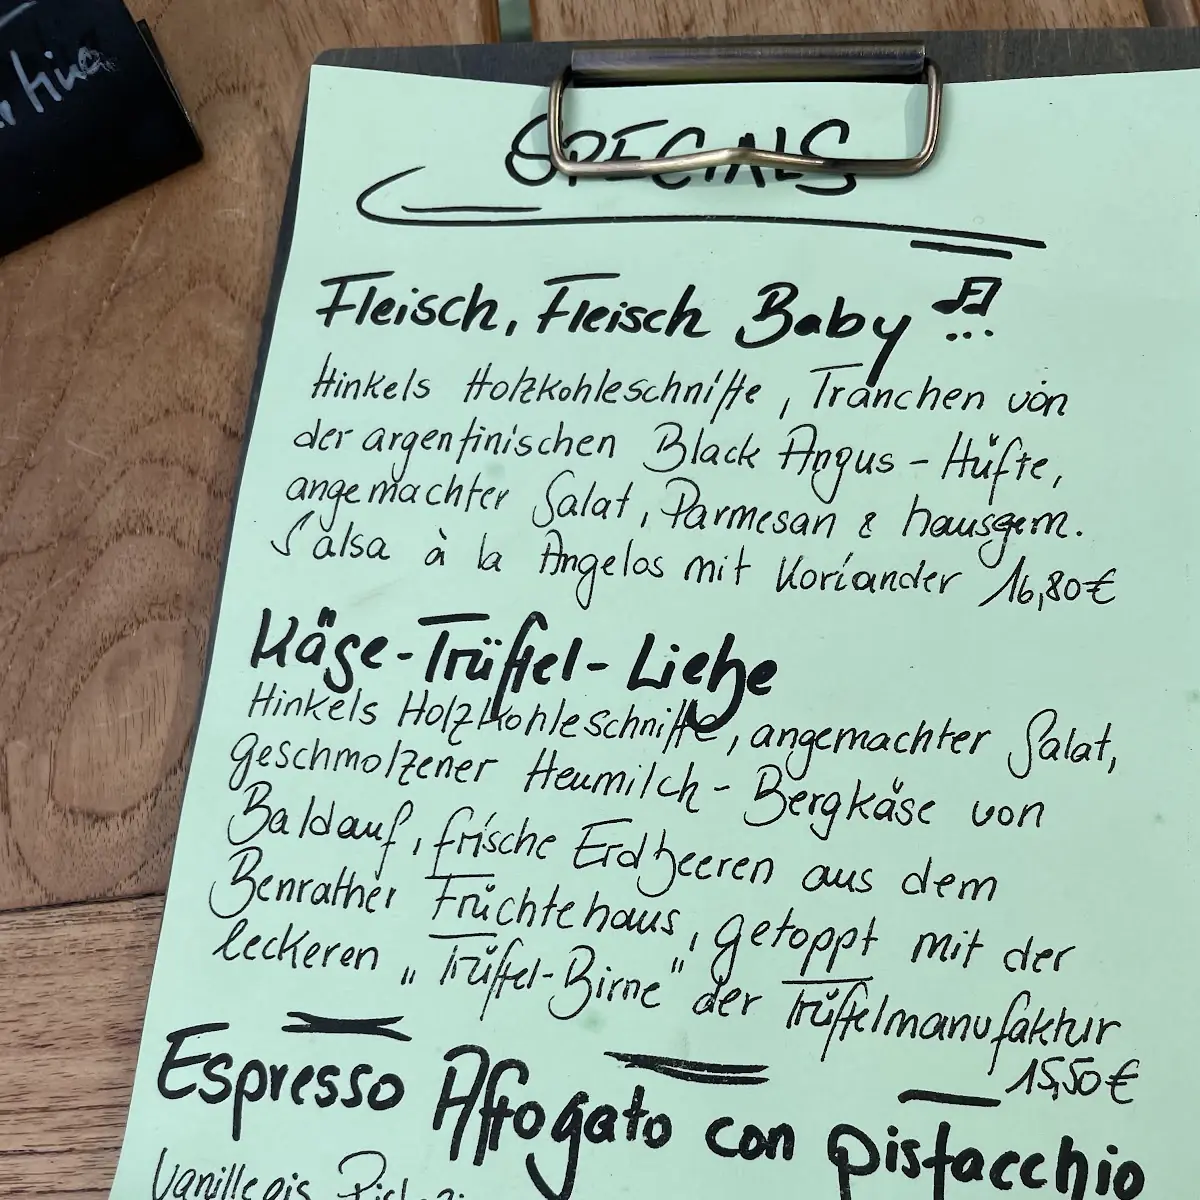 SPECIALS
Fleisch, Fleisch Baby
Hinkels Holzkohleschnitte, Tranchen von
der argentinischen Black Angus - Hüfte,
angemachter Salat, Parmesan & hausgem.
Salsa à la Angelos mit Koriander 16,80€
Käse-Trüffel-Liebe
Hinkels Holzkohleschnitte, angemachter Salat,
geschmolzener Heumilch-Bergkäse von
Baldauf, frische Erdbeeren aus dem
Benrather Früchtehaus, getoppt mit der
leckeren „Trüffel-Birne" der Trüffelmanufaktur
15,50€
Espresso Affogato con pistacchio
Vanilleeis